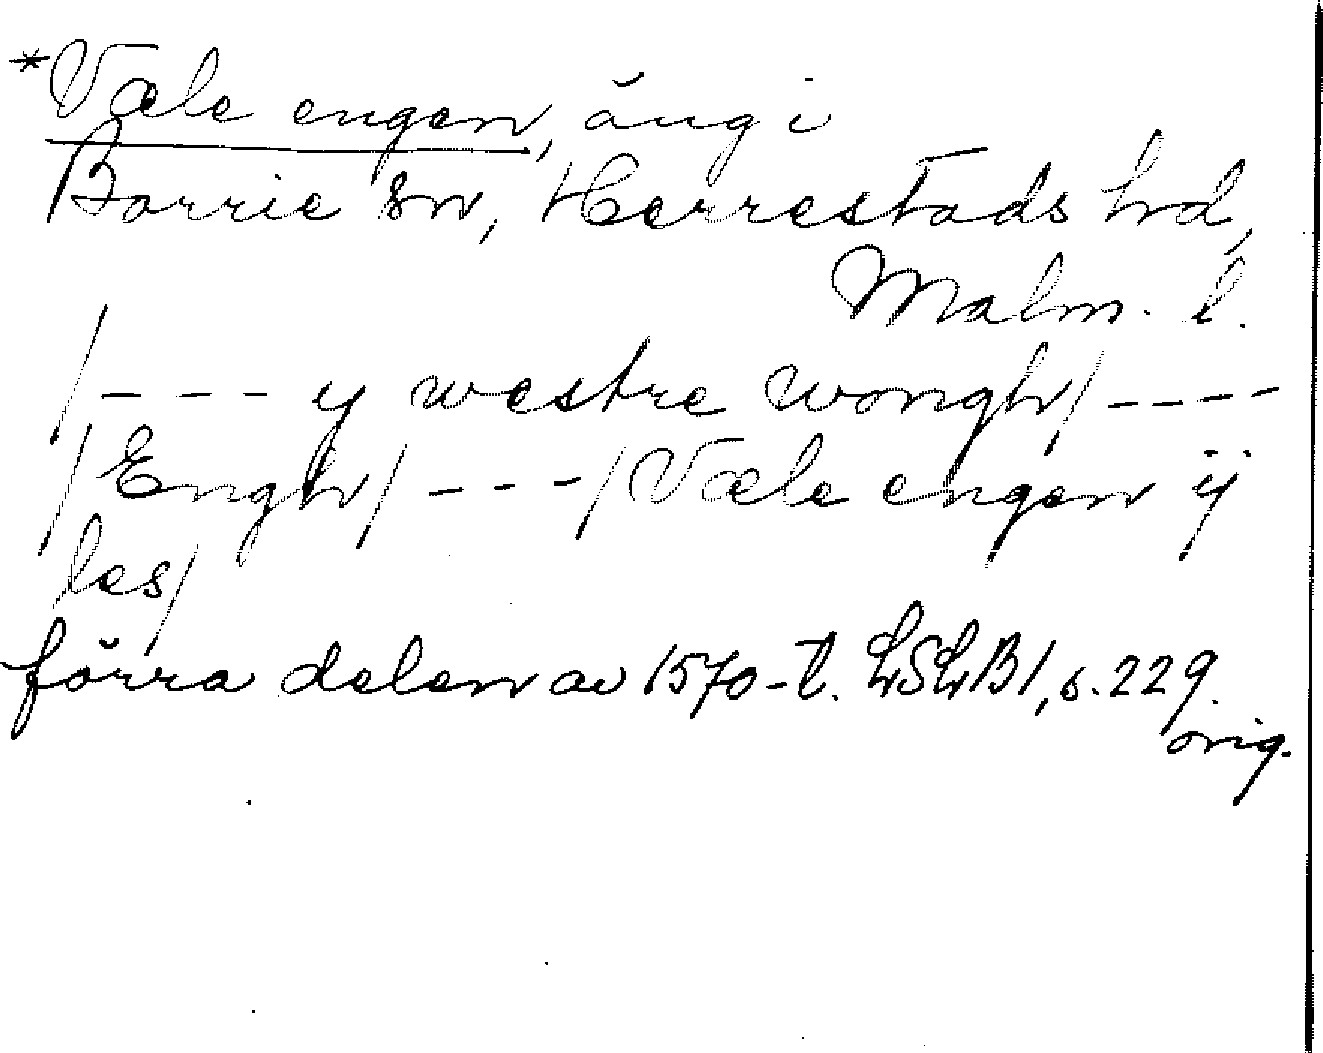 *Væle engen, äng i
Borrie sn, Herrestads hd,
Malm. l.
/---- y westre wongh/ ----
/Engh/ ---/Væle engen ÿ
les/
förra delen av 1570-t. LSLB1, s. 229.
orig.